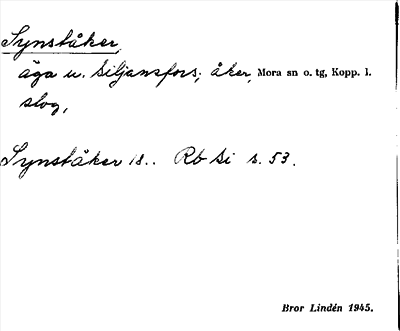 Synståker,
äga u. Siljansfors; åker, Mora sn o. tg, Kopp. l.
slog,
Synståker 18.. Rb Si s. 53.
Bror Lindén 1945.